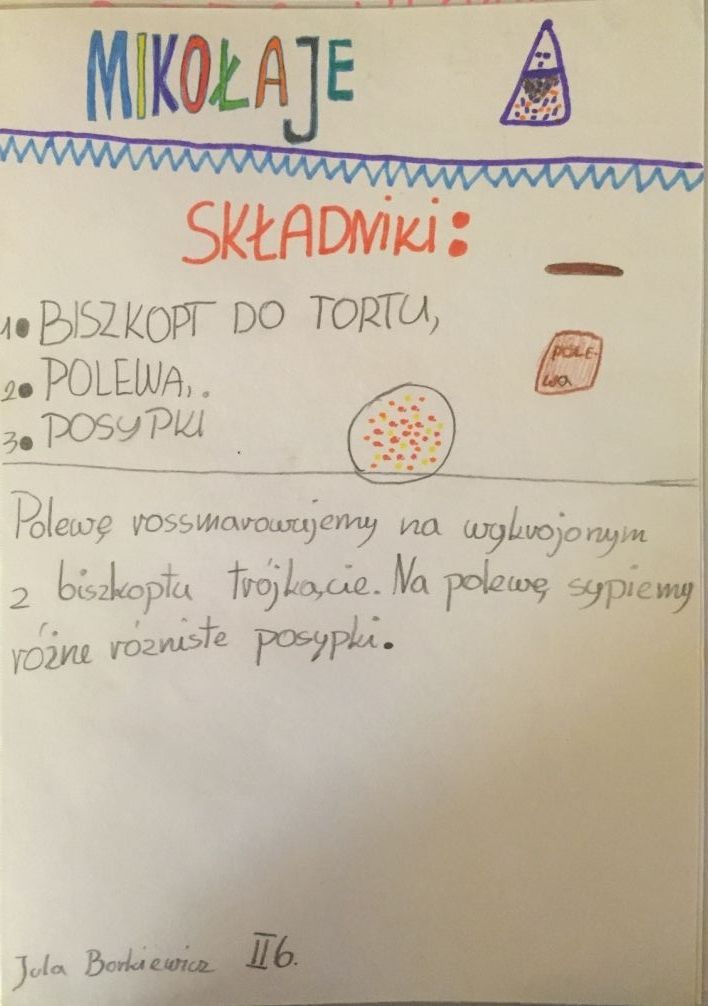 MIKOŁAJE
SKŁADNIKI:
1. BISZKOPT DO TORTU,
2. POLEWA,.
POLE-
WA
3. POSYPKI
Polewę rossmarowujemy na wykrojonym
z biszkoptu trójkącie. Na polewę sypiemy
różne rózniste posypki.
Jula Borkiewicz II b.